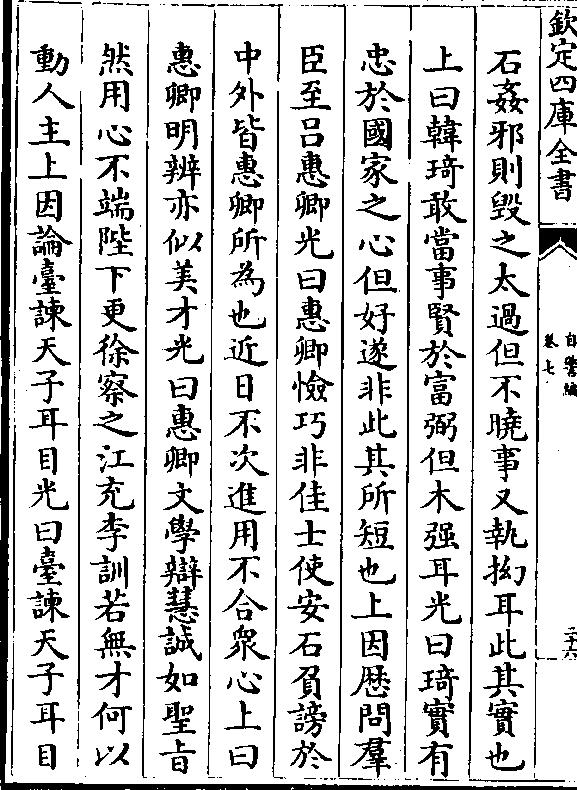 欽定四庫全書
自警編
卷七
二十六
石姦邪則毀之太過但不曉事又執拗耳此其實也
上曰韓琦敢當事賢於富弼但木强耳光曰琦實有
忠於國家之心但好遂非此其所短也上因歴問羣
臣至吕惠卿光曰惠卿憸巧非佳士使安石負謗於
中外皆惠卿所為也近日不次進用不合衆心上曰
惠卿明辨亦似美才光曰惠卿文學辯慧誠如聖㫖
然用心不端陛下更徐察之江充李訓若無才何以
動人主上因論臺諫天子耳目光曰臺諫天子耳目